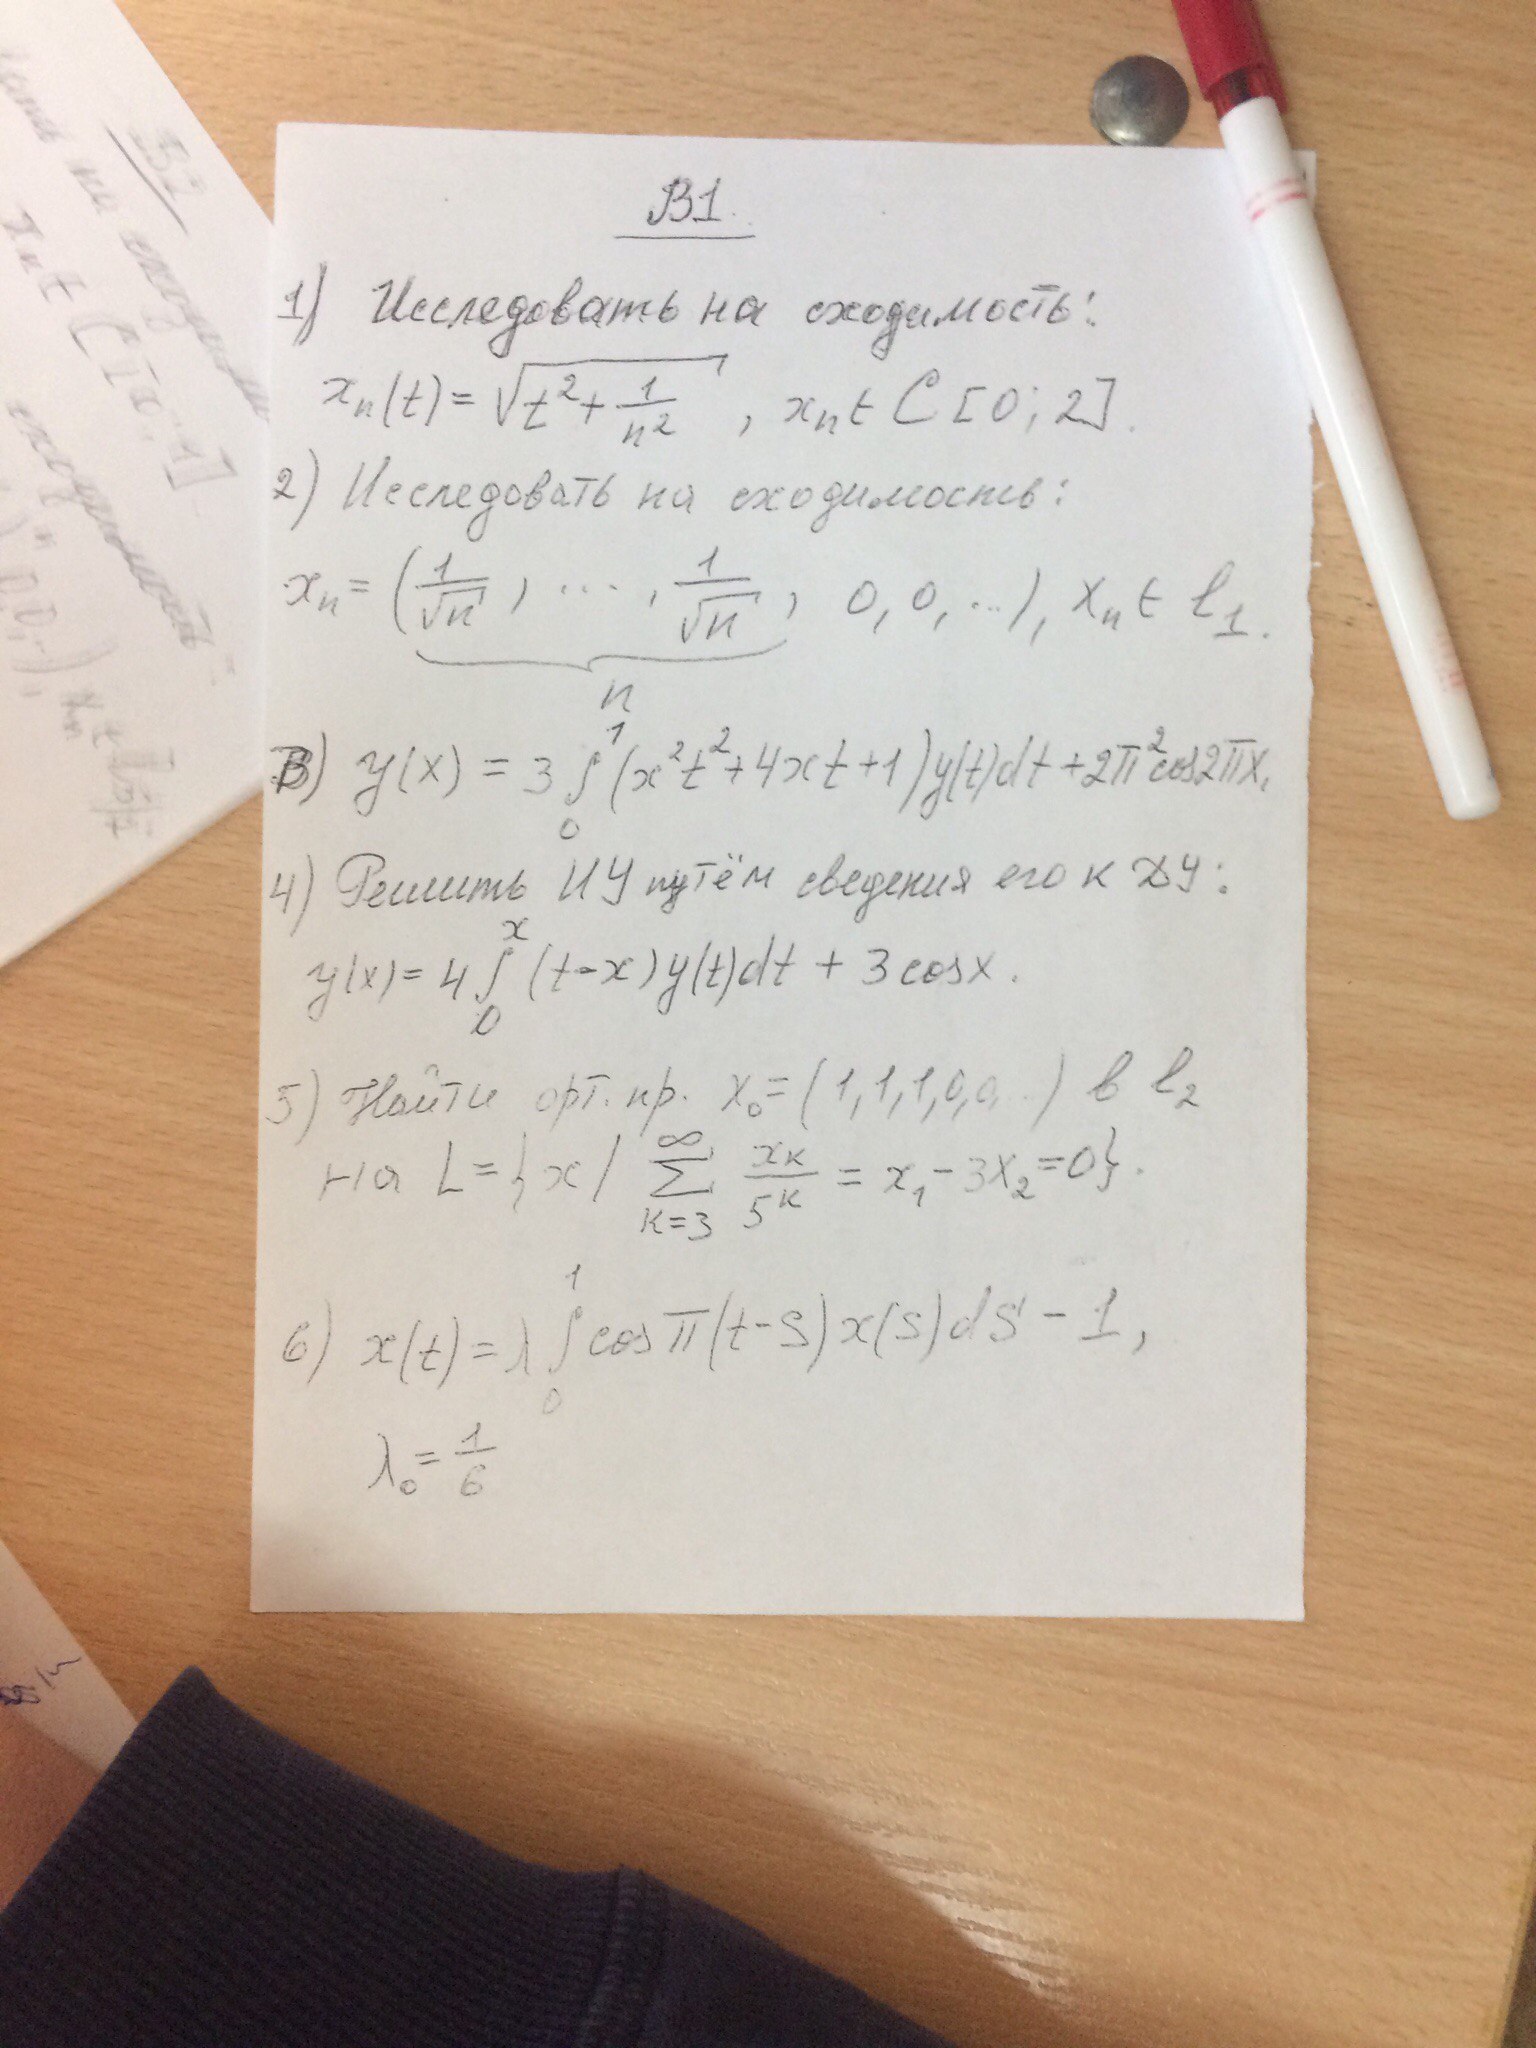 В1.
1) Исследовать на сходимость:
xₙ(t) = √(t² + 1/n²) , xₙ ∈ C [0; 2].
2) Исследовать на сходимость:
xₙ = (1/√n, ...., 1/√n, 0, 0, ...), xₙ ∈ l₁.
n
3) y(x) = 3 ∫₀¹ (x²t² + 4xt + 1) y(t)dt + 2π² cos2πx.
4) Решить ИУ путём сведения его к ДУ:
y(x) = 4 ∫₀ˣ (t-x) y(t)dt + 3 cosx.
5) Найти орт. пр. x₀ = (1, 1, 1, 0, 0, ...) в l₂
на L = { x / ∑_{k=3}^{∞} xₖ/5ᵏ = x₁ - 3x₂ = 0}.
6) x(t) = λ ∫₀¹ cos π(t-s) x(s) ds - 1,
λ₀ = 1/6
В2
на сходим
xₙ ∈ C [0; 1]
сходимость: